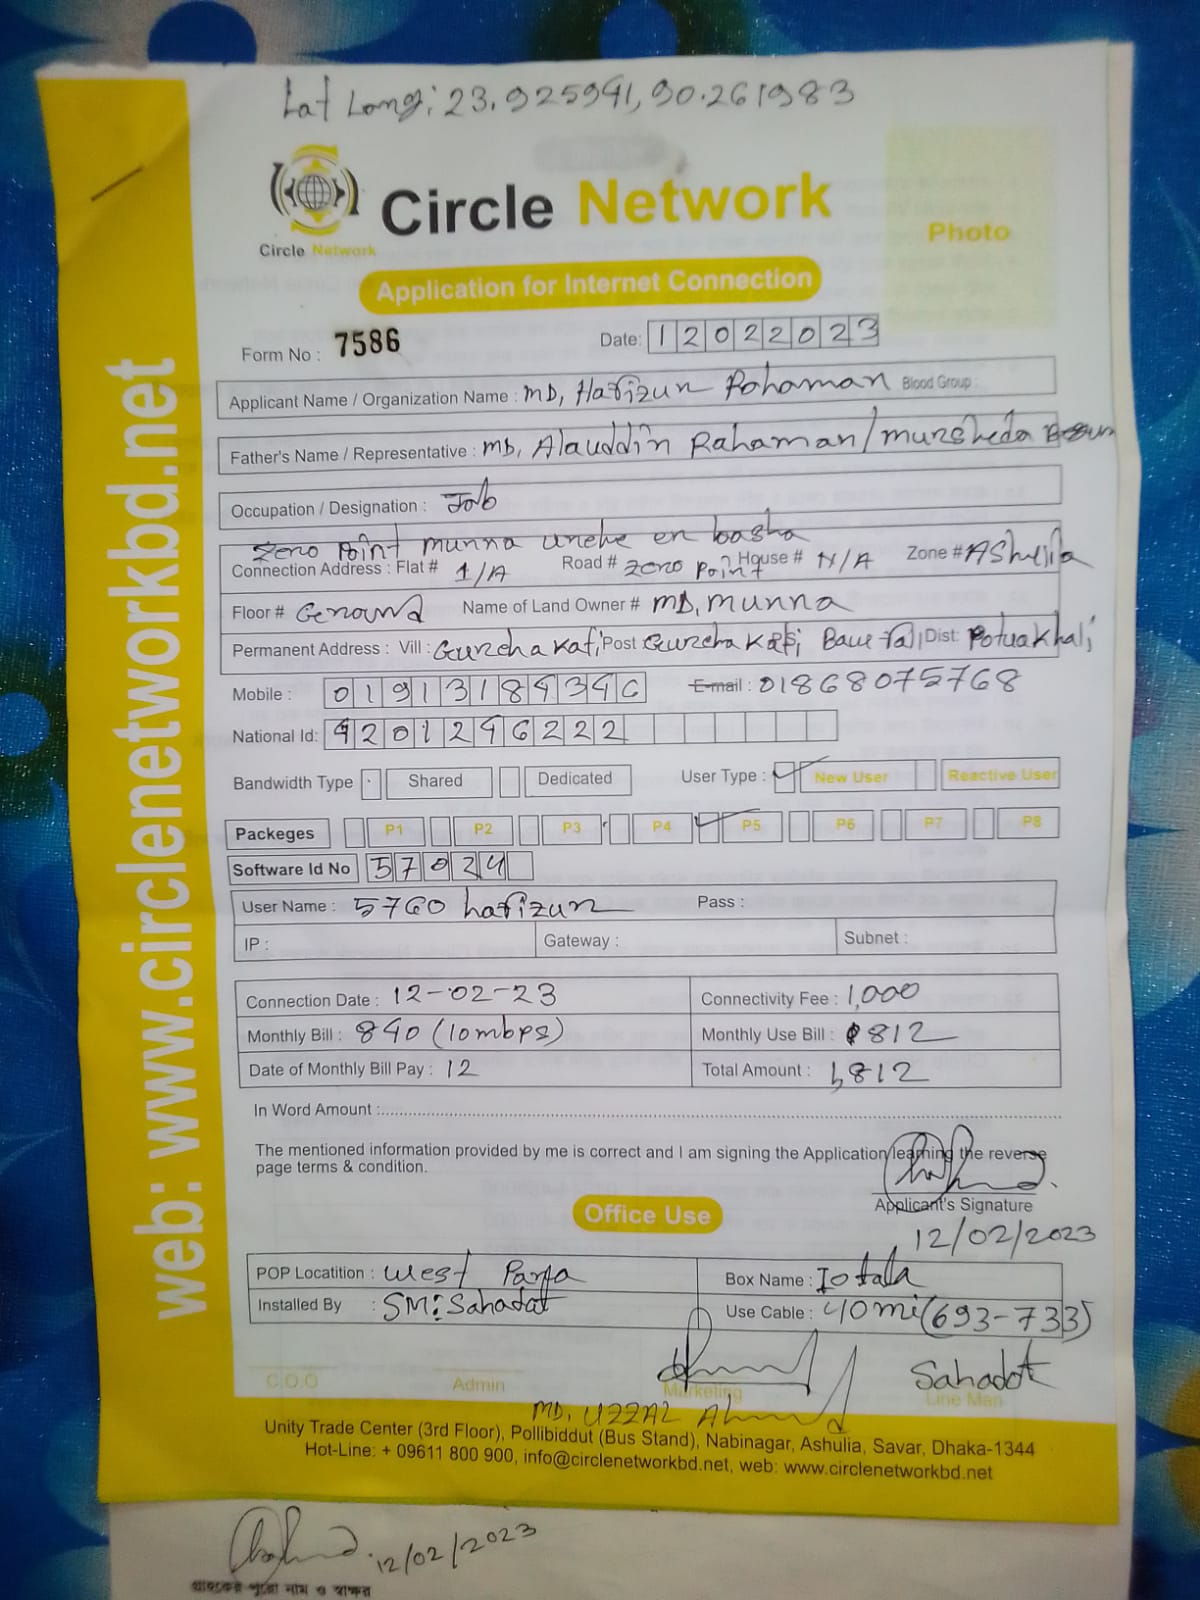 Lat Long: 23.925941, 90.261983
Circle Network
Circle Network
Photo
Application for Internet Connection
Form No : 7586
Date: 12022023
Applicant Name / Organization Name : MD, Hafizun Rohaman Blood Group :
Father's Name / Representative : MD, Alauddin Rahaman/Mursheda Begum
Occupation / Designation : Job
Zero Point munna basha
Connection Address : Flat # 1/A Road # Zero Point House # N/A Zone # AShulia
Floor # Geround Name of Land Owner # MD, munna
Permanent Address : Vill : Post Dist: Potuakhali
Mobile : 01913184346 E-mail : 01868075768
National Id: 4201246222
Bandwidth Type Shared Dedicated User Type : New User Reactive User
Packeges P1 P2 P3 P4 P5 P6 P7 P8
Software Id No 57024
User Name : 5760 hafizun Pass :
IP : Gateway : Subnet :
Connection Date : 12-02-23 Connectivity Fee : 1,000
Monthly Bill : 840 (10mbps) Monthly Use Bill : 812
Date of Monthly Bill Pay : 12 Total Amount : 1,812
In Word Amount :
The mentioned information provided by me is correct and I am signing the Application learning the reverse
page terms & condition.
Applicant's Signature
12/02/2023
Office Use
POP Locatition : West Parfa Box Name : Iotala
Installed By : SM: Sahadat Use Cable : 40mi(693-733)
Sahadot
C.O.O Admin Marketing Line Man
MD. UZZAL Ahmed
Unity Trade Center (3rd Floor), Pollibiddut (Bus Stand), Nabinagar, Ashulia, Savar, Dhaka-1344
Hot-Line: + 09611 800 900, info@circlenetworkbd.net, web: www.circlenetworkbd.net
web: www.circlenetworkbd.net
12/02/2023
গ্রাহকের পুরো নাম ও স্বাক্ষর